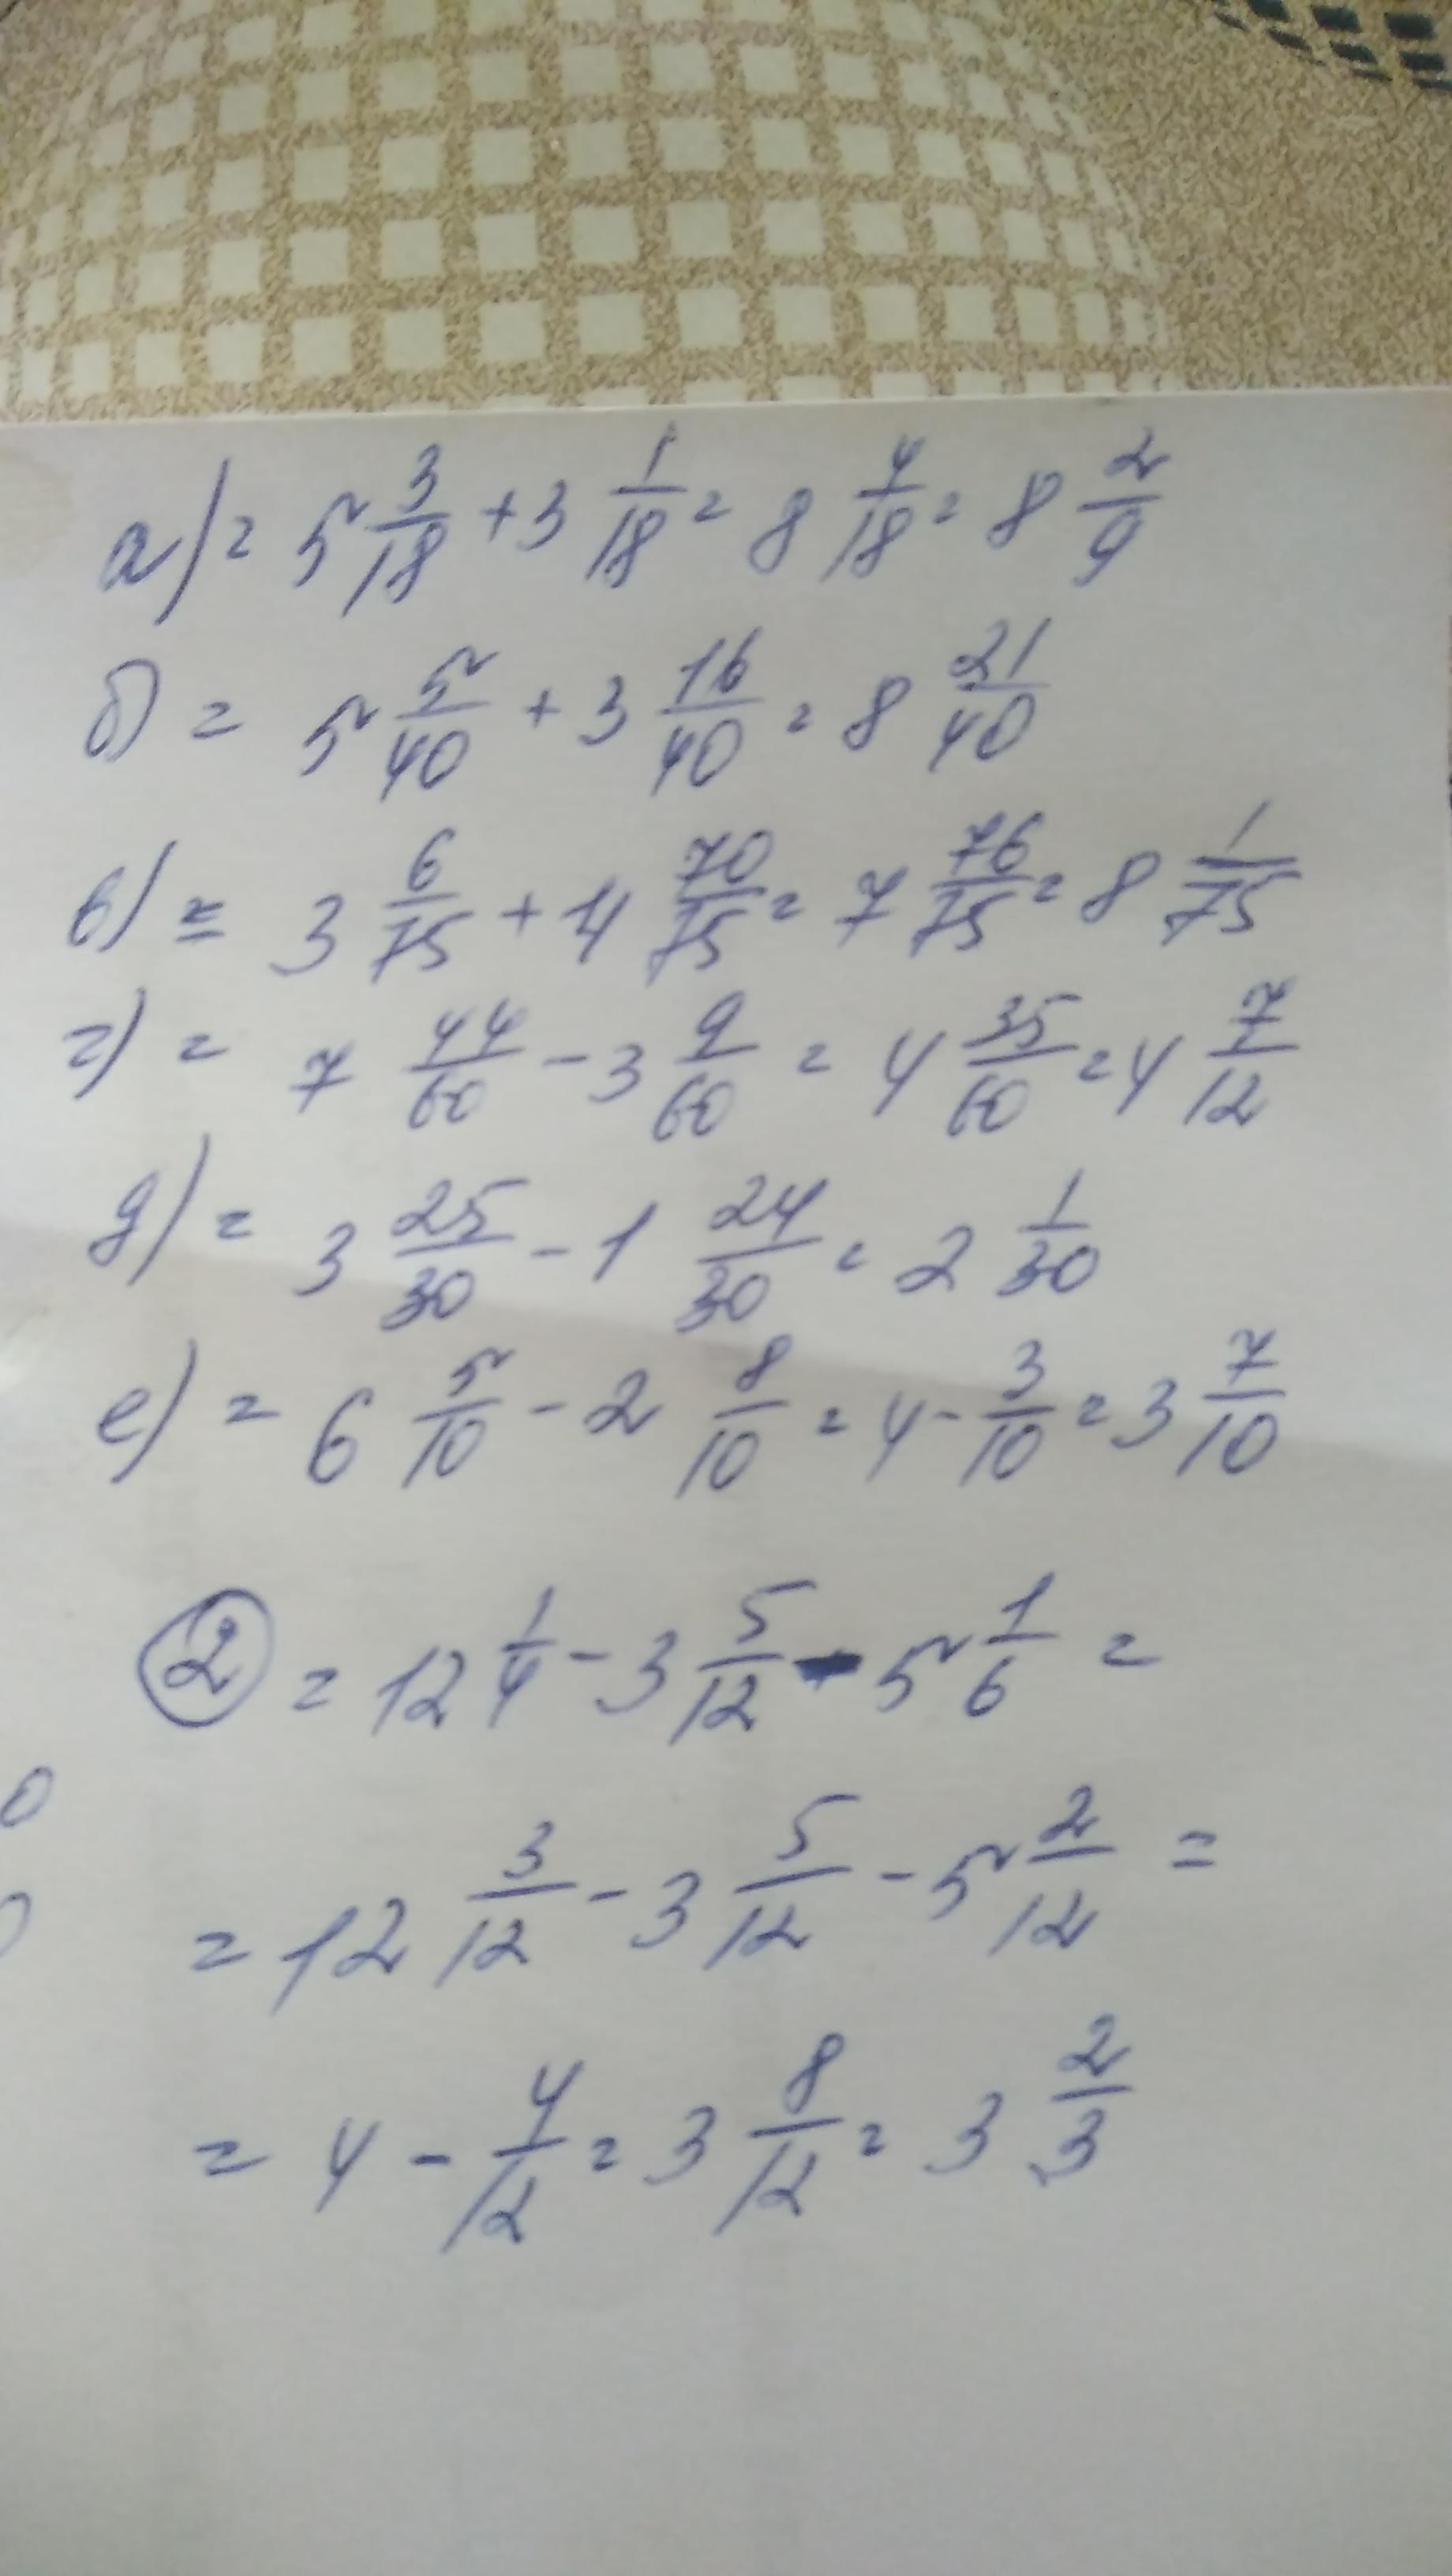 а) = 5 3/18 + 3 1/18 = 8 4/18 = 8 2/9
б) = 5 5/40 + 3 16/40 = 8 21/40
в) = 3 6/75 + 4 70/75 = 7 76/75 = 8 1/75
г) = 7 44/60 - 3 9/60 = 4 35/60 = 4 7/12
д) = 3 25/30 - 1 24/30 = 2 1/30
е) = 6 5/10 - 2 8/10 = 4 - 3/10 = 3 7/10
2 = 12 1/4 - 3 5/12 - 5 1/6 =
= 12 3/12 - 3 5/12 - 5 2/12 =
= 4 - 4/12 = 3 8/12 = 3 2/3